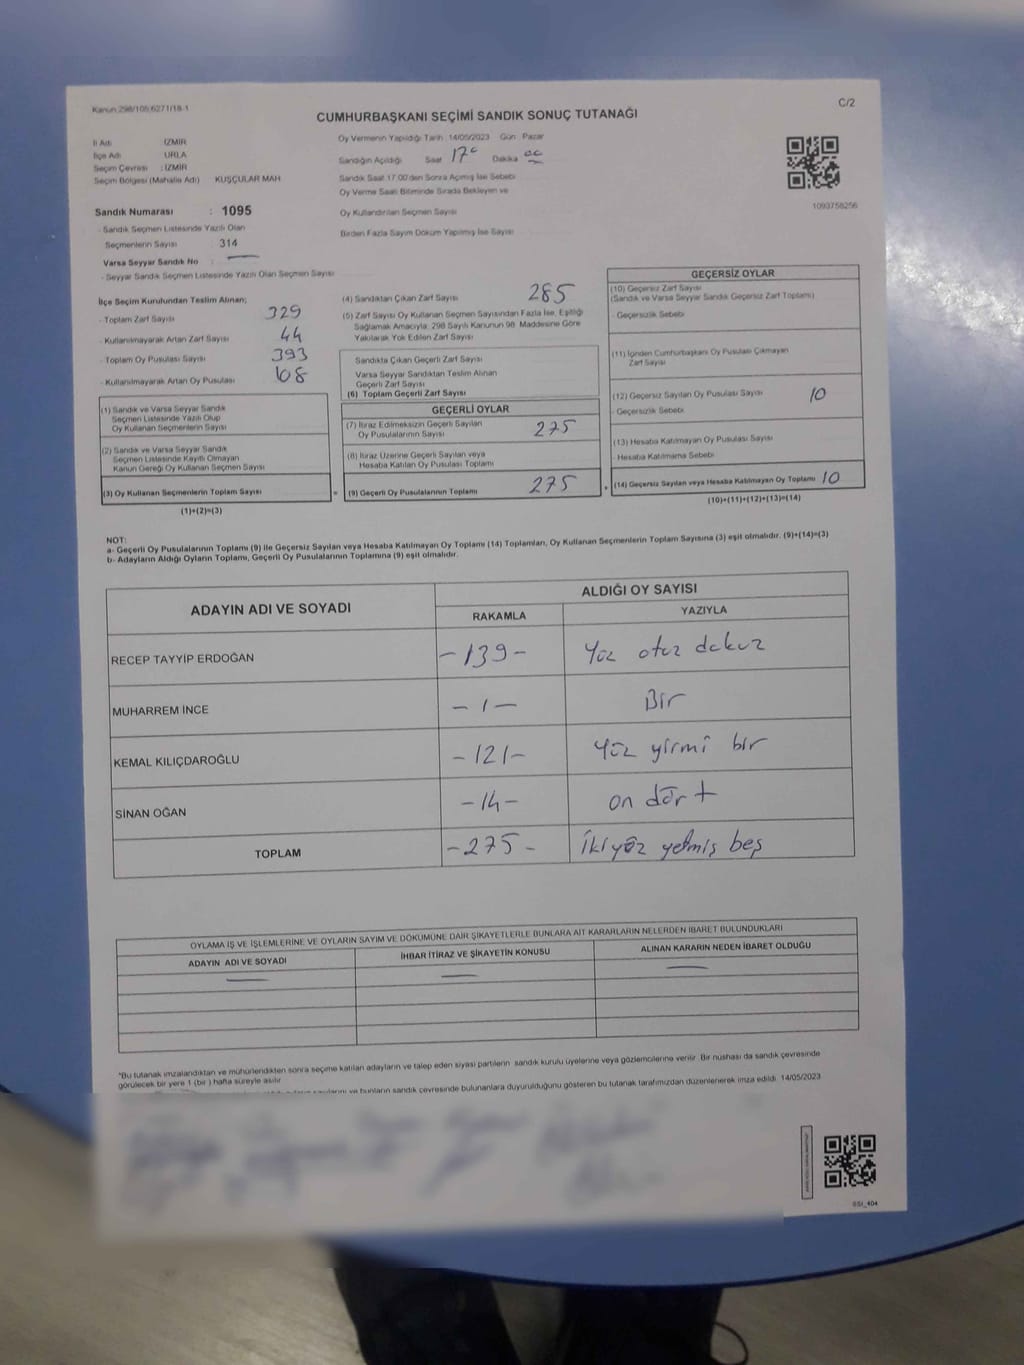 Kanun:298/105;6271/18-1
C/2
CUMHURBAŞKANI SEÇİMİ SANDIK SONUÇ TUTANAĞI
İl Adı : İZMİR
İlçe Adı : URLA
Seçim Çevresi : İZMİR
Seçim Bölgesi (Mahalle Adı) KUŞÇULAR MAH
Oy Vermenin Yapıldığı Tarih 14/05/2023 Gün Pazar
Sandığın Açıldığı Saat 17 Dakika
Sandık Saat 17:00'den Sonra Açılmış İse Sebebi
Oy Verme Saati Bitiminde Sırada Bekleyen ve
Oy Kullandırılan Seçmen Sayısı
Birden Fazla Sayım Döküm Yapılmış İse Sayısı
1093758256
Sandık Numarası : 1095
- Sandık Seçmen Listesinde Yazılı Olan
Seçmenlerin Sayısı : 314
Varsa Seyyar Sandık No :
- Seyyar Sandık Seçmen Listesinde Yazılı Olan Seçmen Sayısı
İlçe Seçim Kurulundan Teslim Alınan;
- Toplam Zarf Sayısı 329
- Kullanılmayarak Artan Zarf Sayısı 44
- Toplam Oy Pusulası Sayısı 393
- Kullanılmayarak Artan Oy Pusulası 108
(1) Sandık ve Varsa Seyyar Sandık
Seçmen Listesinde Yazılı Olup
Oy Kullanan Seçmenlerin Sayısı
(2) Sandık ve Varsa Seyyar Sandık
Seçmen Listesinde Kayıtlı Olmayan
Kanun Gereği Oy Kullanan Seçmen Sayısı
(3) Oy Kullanan Seçmenlerin Toplam Sayısı
(1)+(2)=(3)
(4) Sandıktan Çıkan Zarf Sayısı 285
(5) Zarf Sayısı Oy Kullanan Seçmen Sayısından Fazla İse, Eşitliği
Sağlamak Amacıyla, 298 Sayılı Kanunun 98. Maddesine Göre
Yakılarak Yok Edilen Zarf Sayısı
Sandıkta Çıkan Geçerli Zarf Sayısı
Varsa Seyyar Sandıktan Teslim Alınan
Geçerli Zarf Sayısı
(6) Toplam Geçerli Zarf Sayısı
GEÇERLİ OYLAR
(7) İtiraz Edilmeksizin Geçerli Sayılan
Oy Pusulalarının Sayısı 275
(8) İtiraz Üzerine Geçerli Sayılan veya
Hesaba Katılan Oy Pusulası Toplamı
= (9) Geçerli Oy Pusulalarının Toplamı 275
GEÇERSİZ OYLAR
(10) Geçersiz Zarf Sayısı
(Sandık ve Varsa Seyyar Sandık Geçersiz Zarf Toplamı)
- Geçersizlik Sebebi
(11) İçinden Cumhurbaşkanı Oy Pusulası Çıkmayan
Zarf Sayısı
(12) Geçersiz Sayılan Oy Pusulası Sayısı 10
- Geçersizlik Sebebi
(13) Hesaba Katılmayan Oy Pusulası Sayısı
- Hesaba Katılmama Sebebi
+ (14) Geçersiz Sayılan veya Hesaba Katılmayan Oy Toplamı 10
(10)+(11)+(12)+(13)=(14)
NOT:
a- Geçerli Oy Pusulalarının Toplamı (9) ile Geçersiz Sayılan veya Hesaba Katılmayan Oy Toplamı (14) Toplamları, Oy Kullanan Seçmenlerin Toplam Sayısına (3) eşit olmalıdır. (9)+(14)=(3)
b- Adayların Aldığı Oyların Toplamı, Geçerli Oy Pusulalarının Toplamına (9) eşit olmalıdır.
ADAYIN ADI VE SOYADI ALDIĞI OY SAYISI
RAKAMLA YAZIYLA
RECEP TAYYİP ERDOĞAN -139- Yüz otuz dokuz
MUHARREM İNCE -1- Bir
KEMAL KILIÇDAROĞLU -121- Yüz yirmi bir
SİNAN OĞAN -14- on dört
TOPLAM -275- İkiyüz yetmiş beş
OYLAMA İŞ VE İŞLEMLERİNE VE OYLARIN SAYIM VE DÖKÜMÜNE DAİR ŞİKAYETLERLE BUNLARA AİT KARARLARIN NELERDEN İBARET BULUNDUKLARI
ADAYIN ADI VE SOYADI İHBAR İTİRAZ VE ŞİKAYETİN KONUSU ALINAN KARARIN NEDEN İBARET OLDUĞU
*Bu tutanak imzalandıktan ve mühürlendikten sonra seçime katılan adayların ve talep eden siyasi partilerin sandık kurulu üyelerine veya gözlemcilerine verilir. Bir nüshası da sandık çevresinde
görülecek bir yere 1 (bir) hafta süreyle asılır
sayılarını ve bunların sandık çevresinde bulunanlara duyurulduğunu gösteren bu tutanak tarafımızdan düzenlenerek imza edildi. 14/05/2023
SSI_404